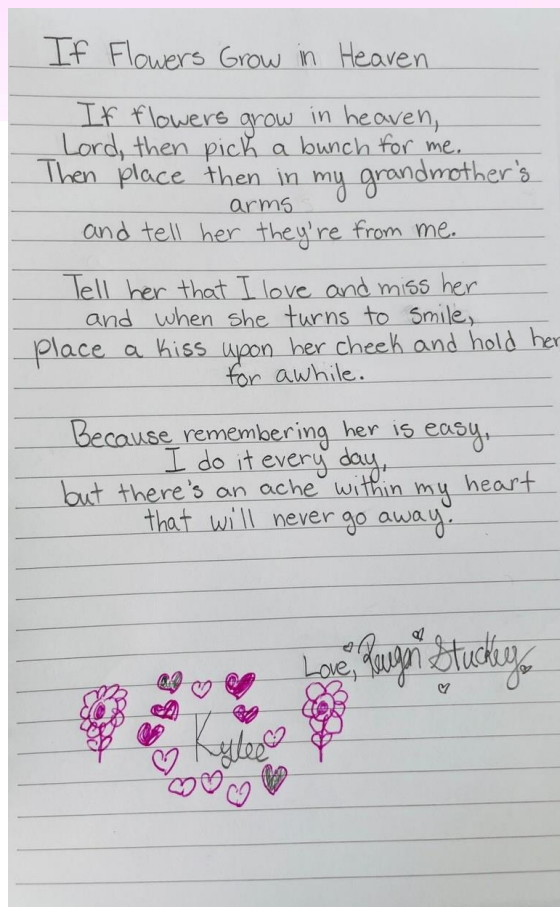 If Flowers Grow in Heaven
If flowers grow in heaven,
Lord, then pick a bunch for me.
Then place then in my grandmother's
arms
and tell her they're from me.
Tell her that I love and miss her
and when she turns to smile,
place a kiss upon her cheek and hold her
for awhile.
Because remembering her is easy,
I do it every day,
but there's an ache within my heart
that will never go away.
Love, Reagan Stuckey
Kylee